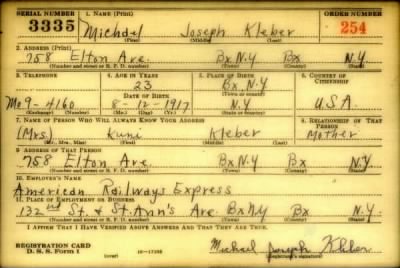 SERIAL NUMBER 1. NAME (Print) ORDER NUMBER
3335 Michael Joseph Kleber 254
(First) (Middle) (Last)
2. ADDRESS (Print)
758 Elton Ave. Bx N.Y Bx N.Y
(Number and street or R. F. D. number) (Town) (County) (State)
3. TELEPHONE 4. AGE IN YEARS 5. PLACE OF BIRTH 6. COUNTRY OF CITIZENSHIP
23 Bx N.Y
DATE OF BIRTH (Town or county)
Me 9-4160 8-12-1917 N.Y U.S.A.
(Exchange) (Number) (Mo.) (Day) (Yr.) (State or country)
7. NAME OF PERSON WHO WILL ALWAYS KNOW YOUR ADDRESS 8. RELATIONSHIP OF THAT PERSON
(Mrs.) Kleber Mother
(Mr., Mrs., Miss) (First) (Middle) (Last)
9. ADDRESS OF THAT PERSON
758 Elton Ave. Bx N.Y Bx N.Y
(Number and street or R. F. D. number) (Town) (County) (State)
10. EMPLOYER'S NAME
American Railways Express
11. PLACE OF EMPLOYMENT OR BUSINESS
132nd St. & St. Ann's Ave. Bx N.Y Bx N.Y
(Number and street or R. F. D. number) (Town) (County) (State)
I AFFIRM THAT I HAVE VERIFIED ABOVE ANSWERS AND THAT THEY ARE TRUE.
REGISTRATION CARD
D. S. S. Form 1 (over) 16-17105 Michael Joseph Kleber
(Registrant's signature)